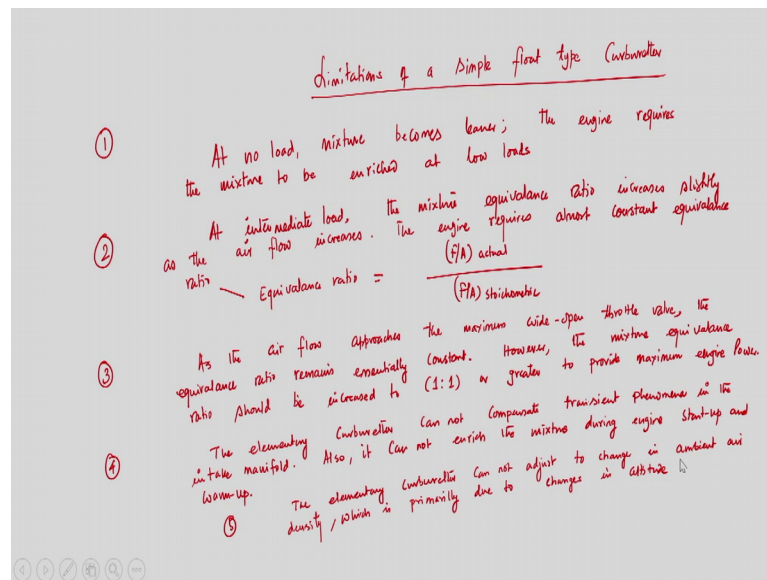 Limitations of a simple float type Carburetter
① At no load, mixture becomes leaner; the engine requires
the mixture to be enriched at low loads
② At intermediate load, the mixture equivalance ratio increases slightly
as the air flow increases. The engine requires almost constant equivalance
ratio
Equivalance ratio = (F/A) actual / (F/A) stoichometric
③ As the air flow approaches the maximum wide-open throttle valve, the
equivalance ratio remains essentially constant. However, the mixture equivalance
ratio should be increased to (1:1) or greater to provide maximum engine Power.
④ The elementary Carburetter Can not Compensate transient phenomena in the
intake manifold. Also, it Can not enrich the mixture during engine start-up and
warm-up.
⑤ The elementary Carburetter Can not adjust to change in ambient air
density, which is primarily due to changes in altitude